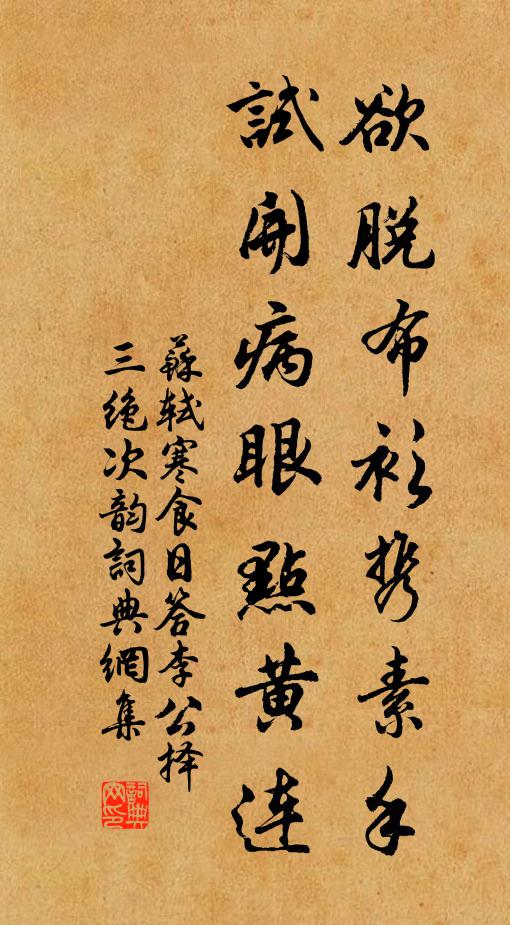 欲脱布衫携素手
試開病眼點黄連
蘇軾寒食日答李公择
三绝次韵詞典網集
詞典网印